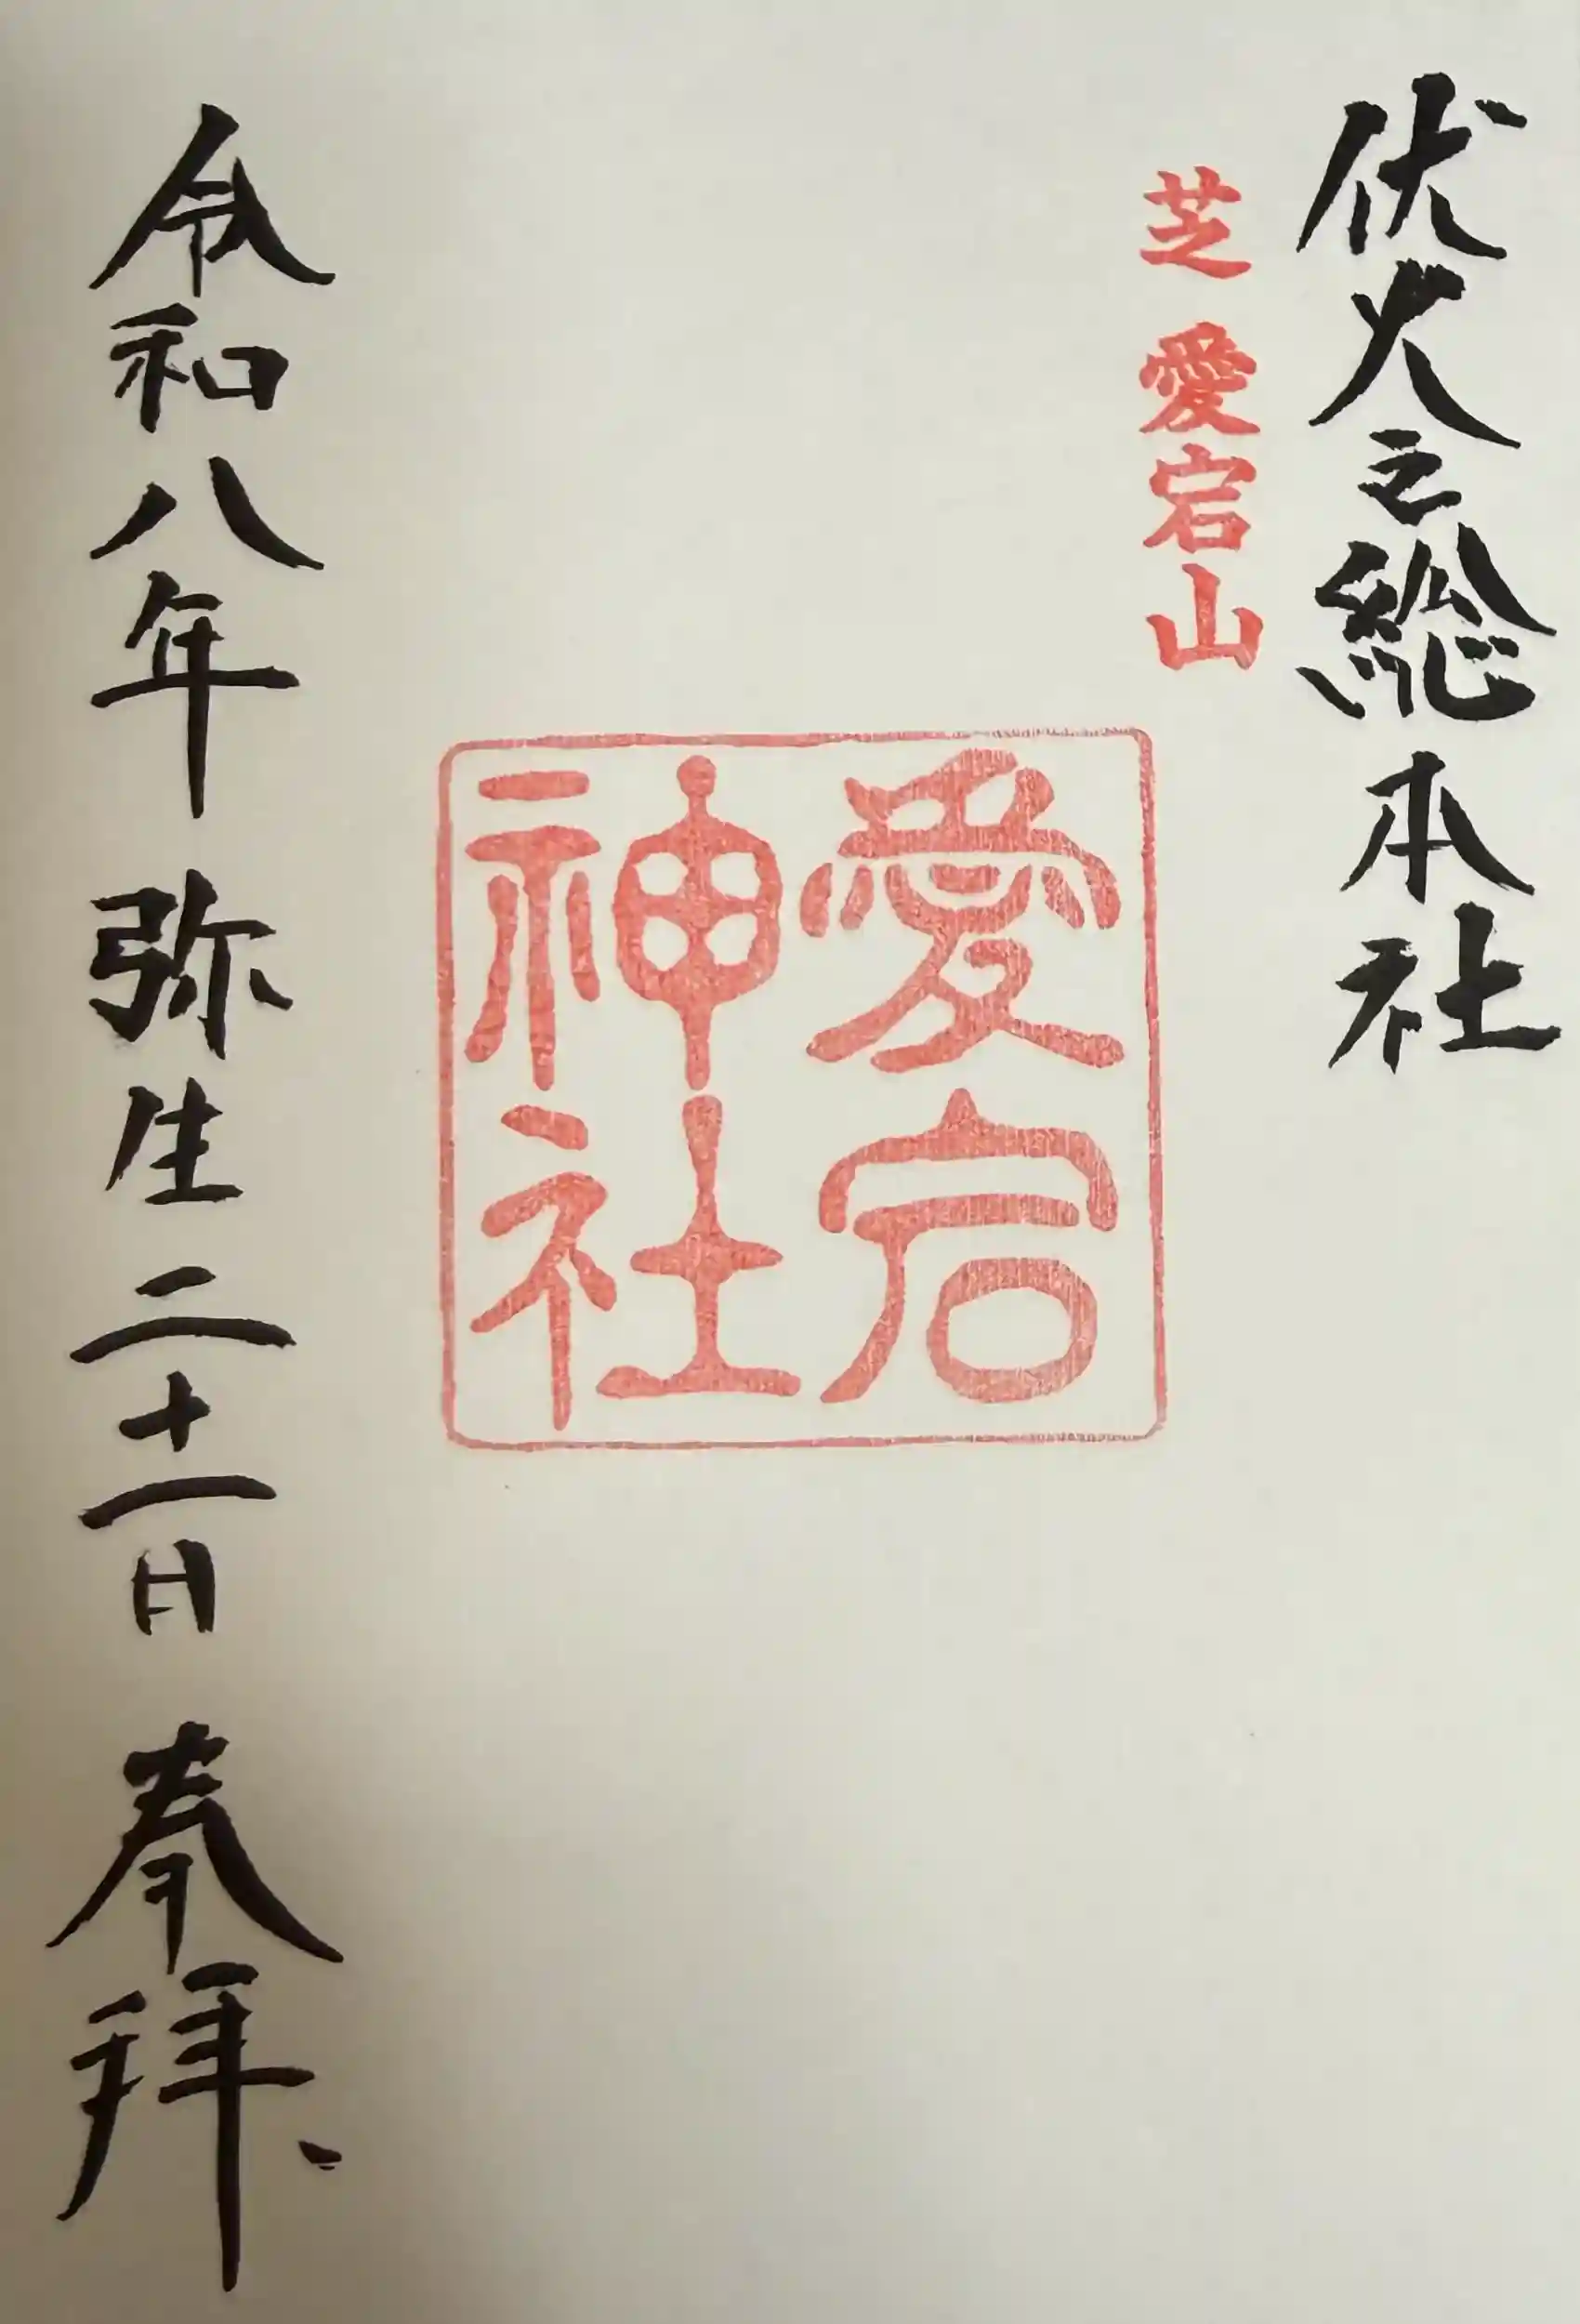 伏火之総本社
芝 愛宕山
愛宕
神社
令和八年 弥生 二十一日 奉拝